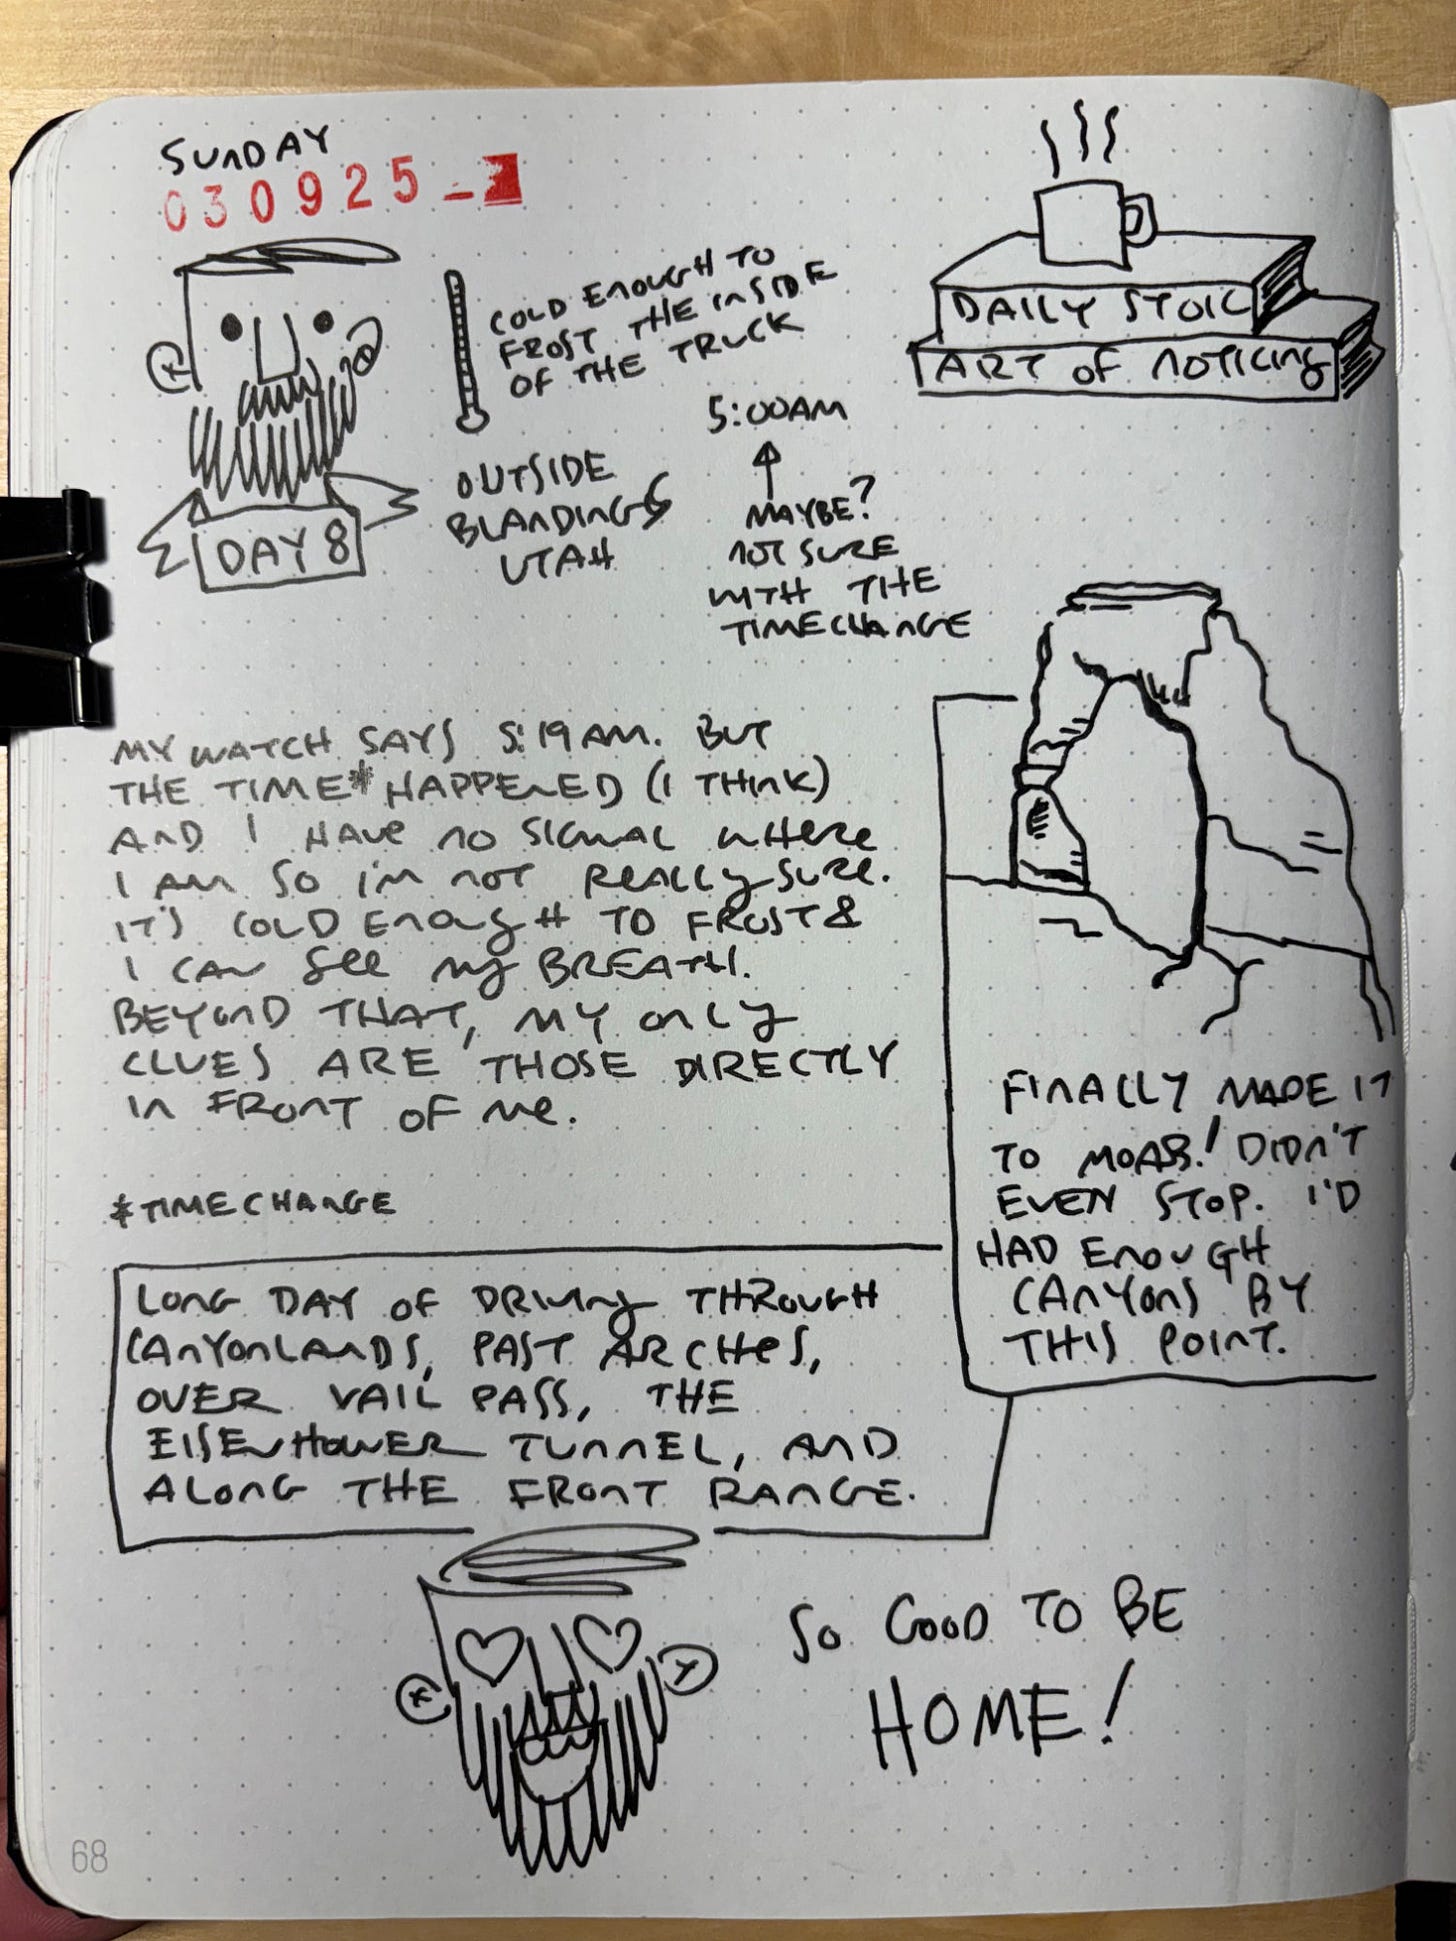 SUNDAY
030925-
COLD ENOUGH TO
FROST THE INSIDE
OF THE TRUCK
DAY 8
OUTSIDE
BLANDINGS
UTAH
5:00AM
MAYBE?
NOT SURE
WITH THE
TIMECHANGE
DAILY STOIC
ART OF NOTICING
MY WATCH SAYS 5:19AM. BUT
THE TIME* HAPPENED (I THINK)
AND I HAVE NO SIGNAL WHERE
I AM SO I'M NOT REALLY SURE.
IT'S COLD ENOUGH TO FROST &
I CAN SEE MY BREATH.
BEYOND THAT, MY ONLY
CLUES ARE THOSE DIRECTLY
IN FRONT OF ME.
*TIMECHANGE
FINALLY MADE IT
TO MOAB! DIDN'T
EVEN STOP. I'D
HAD ENOUGH
CANYONS BY
THIS POINT.
LONG DAY OF DRIVING THROUGH
CANYONLANDS, PAST ARCHES,
OVER VAIL PASS, THE
EISENHOWER TUNNEL, AND
ALONG THE FRONT RANGE.
SO GOOD TO BE
HOME!
68